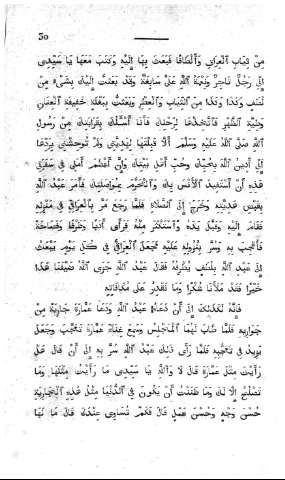 30
مِنْ ثِيَابِ ٱلْعِرَاقِ وَأَلْطَافًا فَبَعَثَ بِهَا إِلَيْهِ وَكَتَبَ مَعَهَا يَا سَيِّدِى
إِنِّى رَجُلٌ تَاجِرٌ وَنِعْمَةُ ٱللهِ عَلَىَّ سَابِغَةٌ وَقَدْ بَعَثْتُ إِلَيْكَ بِشَىْءٍ مِنْ
وَكَذَا وَكَذَا مِنَ ٱلثِّيَابِ وَٱلْعِطْرِ وَبَعَثْتُ بِبَغْلَةٍ خَفِيفَةِ ٱلْعِنَانِ
وَطِيَّةِ ٱلظَّهْرِ فَٱتَّخِذْهَا لِرِجْلِكَ فَأَنَا أَسْأَلُكَ بِقَرَابَتِكَ مِنْ رَسُولِ
ٱللهِ صَلَّى ٱللهُ عَلَيْهِ وَسَلَّمَ أَلَّا قَبِلْتَ هَدِيَّتِى وَلَمْ تُوحِشْنِى بِرَدِّهَا
إِنِّى أَدِينُ ٱللهَ بِحُبِّكَ وَحُبِّ أَهْلِ بَيْتِكَ وَإِنَّ أَعْظَمَ أَمَلِى فِى سَفَرِى
هٰذِهِ أَنْ أَسْتَفِيدَ ٱلْأُنْسَ بِكَ وَٱلتَّحَرُّمَ بِمُوَاصَلَتِكَ فَأَمَرَ عَبْدُ ٱللهِ
بِقَبْضِ هَدِيَّتِهِ وَخَرَجَ إِلَى ٱلصَّلَاةِ فَلَمَّا رَجَعَ مَرَّ بِٱلْعِرَاقِىِّ فِى مَنْزِلِهِ
فَقَامَ إِلَيْهِ وَقَبَّلَ يَدَهُ وَٱسْتَكْثَرَ مِنْهُ فَرَأَى أَدَبًا وَظَرْفًا وَفَصَاحَةً
فَأُعْجِبَ بِهِ وَسُرَّ بِنُزُولِهِ عَلَيْهِ فَجَعَلَ ٱلْعِرَاقِىُّ فِى كُلِّ يَوْمٍ يَبْعَثُ
إِلَى عَبْدِ ٱللهِ بِلُطَفٍ يُطْرِفُهُ فَقَالَ عَبْدُ ٱللهِ جَزَى ٱللهُ ضَيْفَنَا هٰذَا
خَيْرًا فَقَدْ مَلَأَنَا شُكْرًا وَمَا نَقْدِرُ عَلَى مُكَافَاتِهِ
فَإِنَّهُ لَكَذٰلِكَ إِلَى أَنْ دَعَاهُ عَبْدُ ٱللهِ وَدَعَا عَمَّارَةَ جَارِيَةً مِنْ
جَوَارِيهِ فَلَمَّا طَابَ لَهُمَا ٱلْمَجْلِسُ وَسَمِعَ غِنَاءَ عَمَّارَةَ تَعَجَّبَ وَجَعَلَ
يَزِيدُ فِى تَعَجُّبِهِ فَلَمَّا رَأَى ذٰلِكَ عَبْدُ ٱللهِ سُرَّ بِهِ إِلَى أَنْ قَالَ هَلْ
رَأَيْتَ مِثْلَ عَمَّارَةَ قَالَ لَا وَٱللهِ يَا سَيِّدِى مَا رَأَيْتُ مِثْلَهَا وَمَا
تَصْلُحُ إِلَّا لَكَ وَمَا ظَنَنْتُ أَنْ يَكُونَ فِى ٱلدُّنْيَا مِثْلُ هٰذِهِ ٱلْجَارِيَةِ
حُسْنَ وَجْهٍ وَحُسْنَ عَمَلٍ قَالَ فَكَمْ تُسَاوِى عِنْدَكَ قَالَ مَا لَهَا